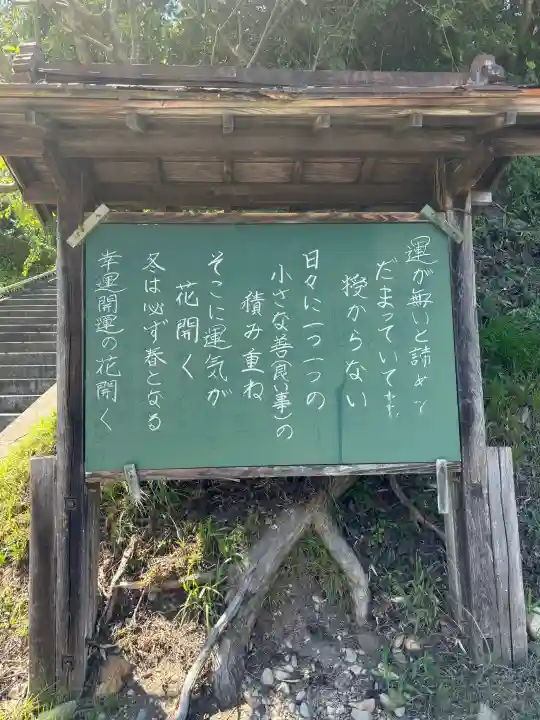 運が無いと諦めて
だまっていてま
授からない
日々に一つ一つの
小さな善(良い事)の
積み重ね
そこに運気が
花開く
冬は必ず春となる
幸運開運の花開く